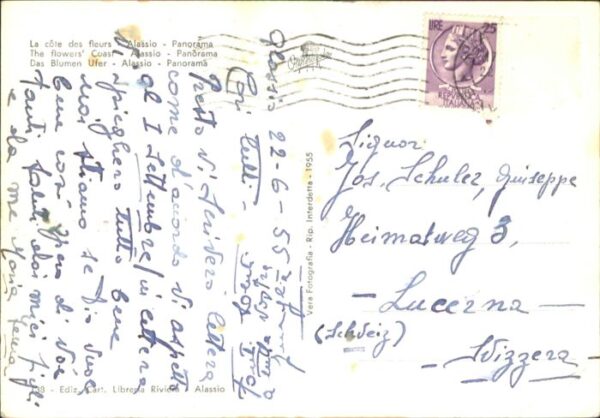 La côte des fleurs - Alassio - Panorama
The flowers' Coast - Alassio - Panorama
Das Blumen Ufer - Alassio - Panorama
LIRE 25
REPUBBLICA
ITALIANA
Alassio 22-6-55
Cari tutti -
Presto vi scrivero lettera
come d'accordo vi aspetto
al I Settembre
spiegherò tutto bene
noi stiamo
bene così spero di voi
tanti saluti dai miei figli
e da me
Vera Fotografia - Rip. Interdetta - 1955
Signor
Jos. Schuler, Guiseppe
Heimatweg 3,
- Lucerna -
(Schweiz)
- Svizzera -
- Ediz. Cart. Libreria Riviera - Alassio